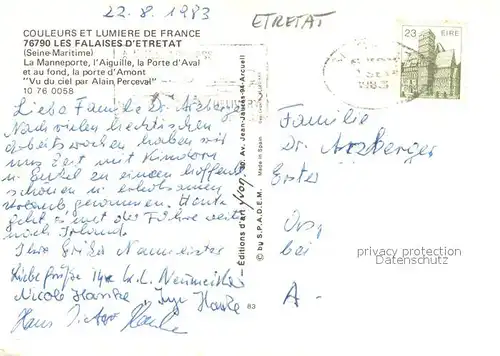 22.8.1983
ETRETAT
COULEURS ET LUMIERE DE FRANCE
76790 LES FALAISES D'ETRETAT
(Seine-Maritime)
La Manneporte, l'Aiguille, la Porte d'Aval
et au fond, la porte d'Amont
"Vu du ciel par Alain Perceval"
10 76 0058
23 EIRE
1983
Liebe Familie Dr. Arzberger
Nach vielen hektischen
Arbeitswochen haben wir
uns Zeit mit Kindern
u. Enkel zu einen hoffentl.
schönen u. erholsamen
Urlaub genommen. Heute
geht's mit der Fähre weiter
nach Irland.
Ihre Erika Naumeister
Liebe Grüße Ihre
Nicole Hanke, Inge Hanke
Hans
Editions d'art yvon, 30, Av. Jean-Jaurès-94-Arcueil
Made in Spain
© by S.P.A.D.E.M.
83
Familie
Dr. Arzberger
Erster
Ors,
bei
A-
privacy protection
Datenschutz